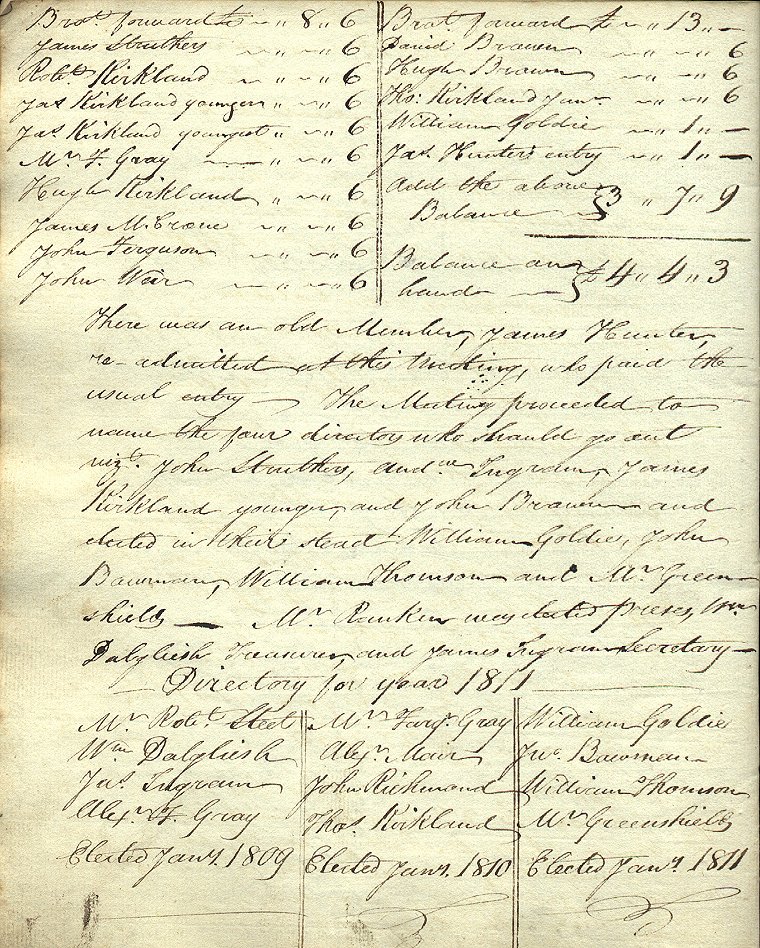 Brot. forward £ ~ " 8 " 6
James Struthers ~ " ~ " 6
Robt. Kirkland ~ " ~ " 6
Jas. Kirkland younger ~ " ~ " 6
Jas. Kirkland youngest ~ " ~ " 6
Mr. F. Gray ~ " ~ " 6
Hugh Kirkland ~ " ~ " 6
James McCrone ~ " ~ " 6
John Ferguson ~ " ~ " 6
John Weir ~ " ~ " 6
Brot. forward £ ~ " 13 " —
David Brown ~ " ~ " 6
Hugh Brown ~ " ~ " 6
Tho: Kirkland Junr. ~ " ~ " 6
William Goldie ~ " 1 " —
Jas. Hunter's entry ~ " 1 " —
Add the above
Balance } 3 " 7 " 9
Balance on
hand } £ 4 " 4 " 3
There was an old Member, James Hunter,
re-admitted at this Meeting, who paid the
usual entry — The Meeting proceeded to
name the four directors who should go out
vizt. John Struthers, Andw. Ingram, James
Kirkland younger, and John Brown and
elected in their stead William Goldie, John
Bowman, William Thomson and Mr. Green-
shields — Mr. Ranken was elected preses, Wm.
Dalgliesh Treasurer, and James Ingram Secretary —
Directory for year 1811
Mr. Robt. Steel
Wm. Dalgliesh
Jas. Ingram
Alexr. F. Gray
Elected Jany. 1809
Mr. Farqr. Gray
Alexr. Mair
John Richmond
Thos. Kirkland
Elected Jany. 1810
William Goldie
Jno. Bowman
William Thomson
Mr. Greenshields
Elected Jany. 1811